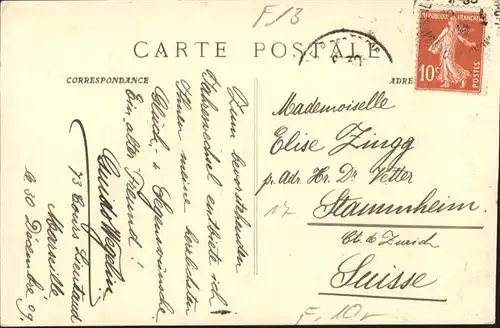 F/3
CARTE POSTALE
CORRESPONDANCE
ADRE
REPUBLIQUE FRANÇAISE
10c
POSTES
Zum bevorstehenden
Jahreswechsel entbiete ich
Ihnen meine herzlichsten
Glück- & Segenswünsche.
Ein alter Freund!
Guido
73 Cours Lieutaud
Marseille
le 30 Décembre 09.
Mademoiselle
Elise Zingg
pr. Adr. Hr. Dr Vetter
Stammheim.
Ct. de Zürich
Suisse
F. 10